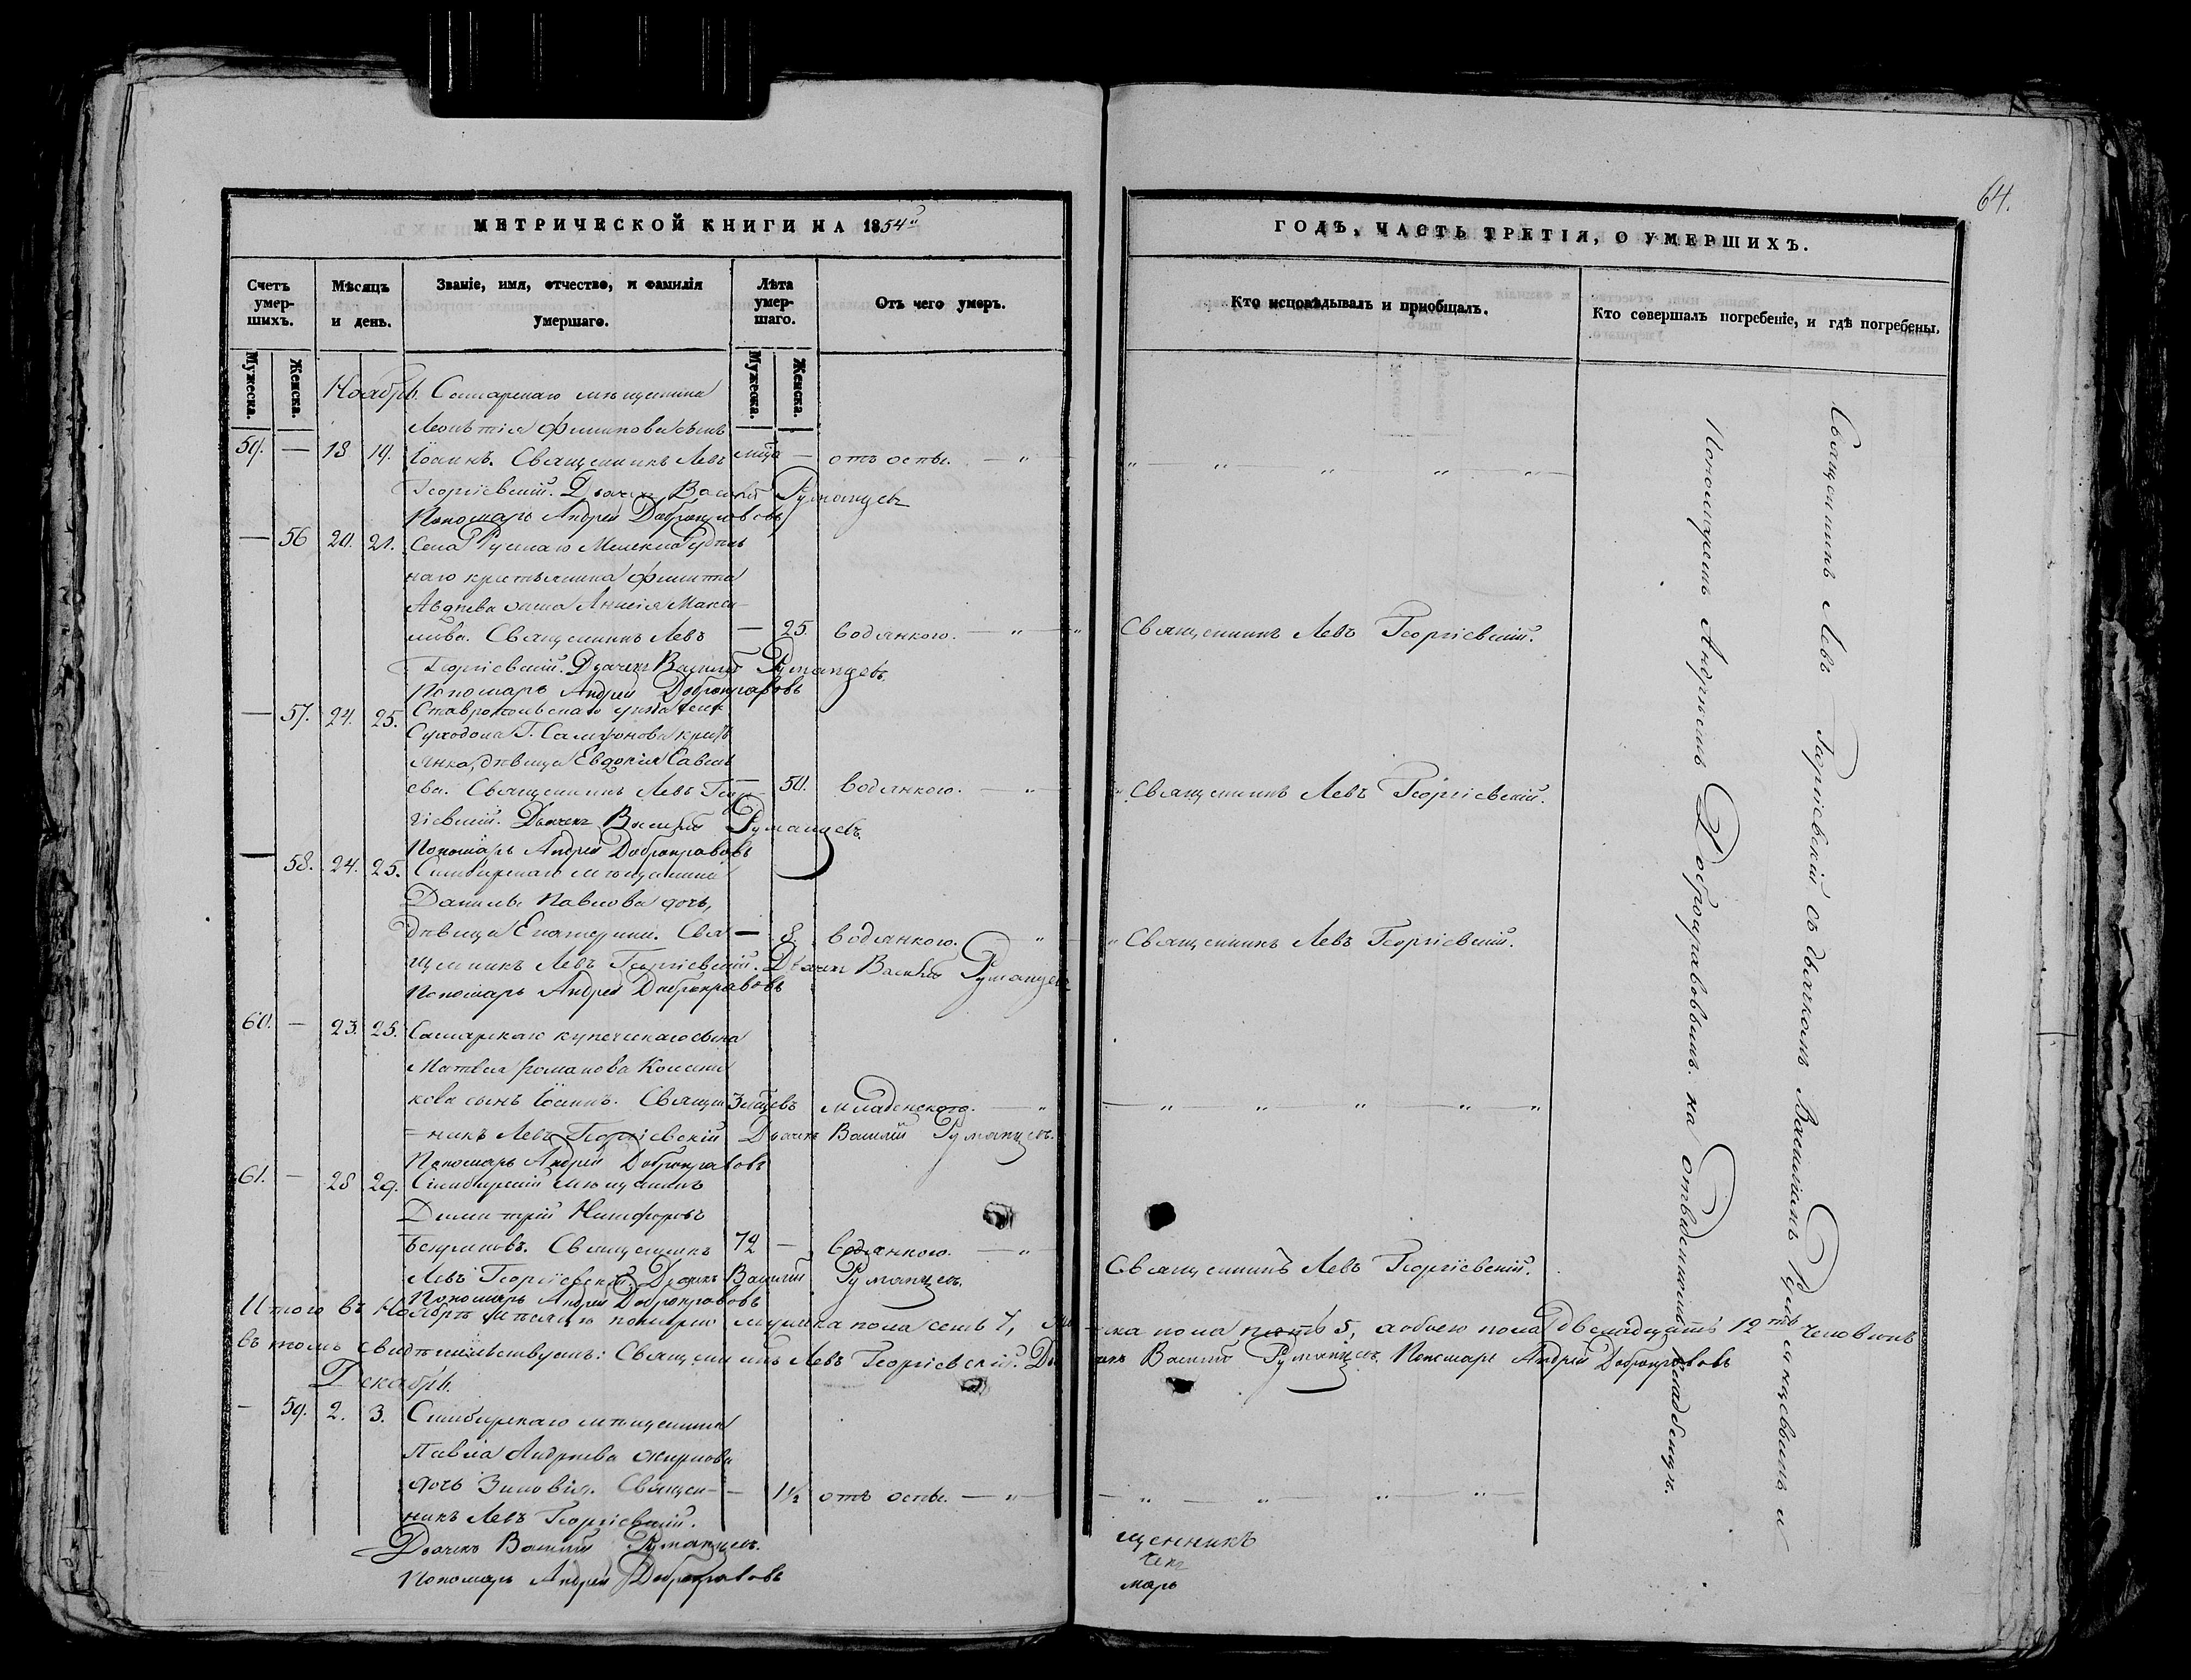 64.
МЕТРИЧЕСКОЙ КНИГИ НА 1854й
ГОДЪ, ЧАСТЬ ТРЕТІЯ, О УМЕРШИХЪ.
Счетъ умер-шихъ.
Мѣсяцъ и день.
Званіе, имя, отчество, и фамилія умершаго.
Лѣта умер-шаго.
Отъ чего умеръ.
Кто исповѣдывалъ и пріобщалъ.
Кто совершалъ погребеніе, и гдѣ погребены.
Мужеска.
Женска.
Мужеска.
Женска.
Ноябрь. Самарскаго мѣщанина
Леонтія Филипова сынъ
59. — 18 19. Іоаннъ. Священникъ Левъ — отъ оспы. — „
Георгіевскій. Дьячекъ Василій Румянцевъ
Пономарь Андрей Добронравовъ
— 56 20. 21. Села Русскаго Мелекеса
наго крестьянина Филипа
Авдѣева жена Анисія Макси-
мова. Священникъ Левъ — 25. водянкою. — „ Священникъ Левъ Георгіевскій.
Георгіевскій. Дьячекъ Василій Румянцевъ.
Пономарь Андрей Добронравовъ
— 57. 24. 25. Ставропольскаго уѣзда сел.
Суходола Г. Самсонова крест
янка, дѣвица Евдокія Савель
ева. Священникъ Левъ Геор — 50. водянкою. — „ Священникъ Левъ Георгіевскій.
гіевскій. Дьячекъ Василій Румянцевъ.
Пономарь Андрей Добронравовъ
— 58. 24. 25. Симбирскаго мѣщанина
Данилы Павлова дочь,
дѣвица Екатерина. Свя — 8. водянкою. „ Священникъ Левъ Георгіевскій.
щенникъ Левъ Георгіевскій. Дьячекъ Василій Румянцевъ
Пономарь Андрей Добронравовъ
60. — 23. 25. Самарскаго купеческаго сына
Матвея Романова
кова сынъ Іоаннъ. Священ 3 мѣсцевъ младенскою. — „
=никъ Левъ Георгіевскій Дьячекъ Василій Румянцевъ.
Пономарь Андрей Добронравовъ
61. — 28 29. Симбирскій мѣщанинъ
Димитрій Никифоровъ
Священникъ 72 — водянкою. — „ Священникъ Левъ Георгіевскій.
Левъ Георгіевскій. Дьячекъ Василій Румянцевъ.
Пономарь Андрей Добронравовъ
Итого въ Ноябрѣ мѣсяцѣ померло мужеска пола семь 7, жен ска пола пять 5, а обоего пола двенадцать 12ть человѣкъ
въ томъ свидѣтельствуютъ: Священникъ Левъ Георгіевскій. Дья чекъ Василій Румянцевъ. Пономарь Андрей Добронравовъ
Декабрь.
— 59. 2. 3. Симбирскаго мѣщанина
Павла Андреева
дочь Зиновія. Священ- — 1½ отъ оспы. — „
никъ Левъ Георгіевскій.
Дьячекъ Василій Румянцевъ.
Пономарь Андрей Добронравовъ
щенникъ
чекъ
марь
Священникъ Левъ Георгіевскій съ дьячкомъ Василіемъ Румянцевымъ и
Пономаремъ Андреемъ Добронравовымъ. на отведенномъ кладбищѣ.